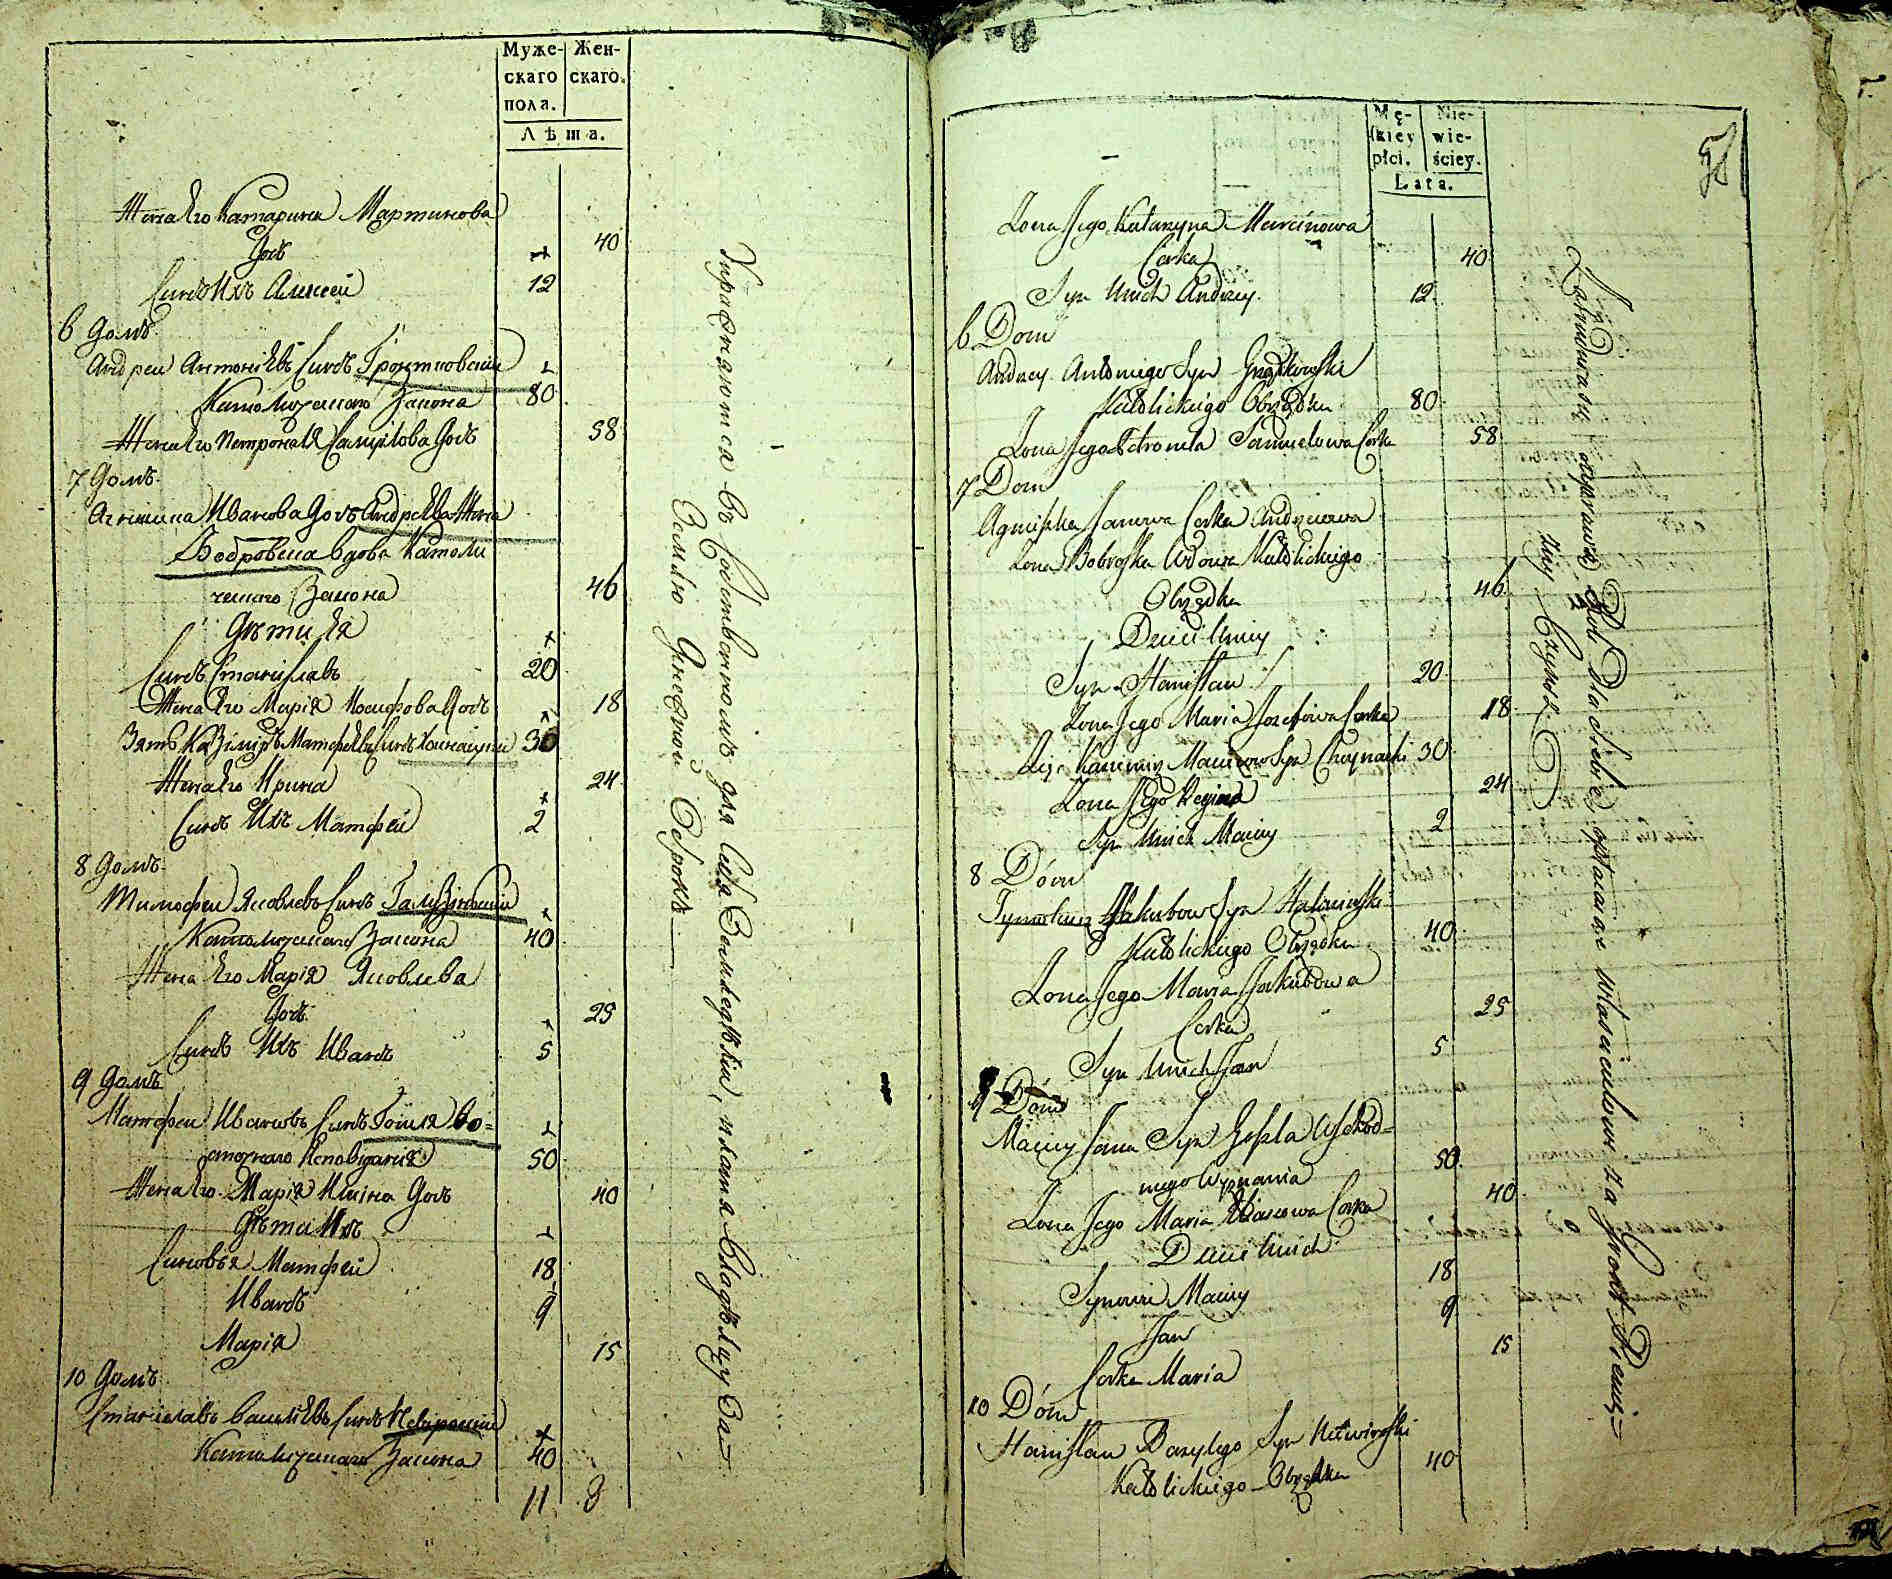 Муже-
скаго
пола.
Жен-
скаго.
Лѣта.
Жена Его Катарина Мартинова
Дочь
40
Сынъ Ихъ Алексей
12
6 Домъ
Андрей Антоніевъ Сынъ Гронтковскій
Католическаго Закона
80
Жена Его Петронеля Самуилова Дочь
58
7 Домъ
Агнешка Иванова Дочь Андреева Жена
Бобровска вдова Католи
ческаго Закона
46
Дѣти Ея
Сынъ Станиславъ
20
Жена Его Марія Иосифова Дочь
18
Зять Казиміръ Матфеевъ Сынъ Хойнацкій
30
Жена Его Ирина
24
Сынъ Ихъ Матфей
2
8 Домъ
Тимофей Яковлевъ Сынъ
Католическаго Закона
40
Жена Его Марія Яковлева
Дочь
25
Сынъ Ихъ Иванъ
5
9 Домъ
Матфей Ивановъ Сынъ Гошля Во-
сточнаго Исповеданія
50
Жена Его Марія Ильина Дочь
40
Дѣти Ихъ
Сыновья Матфей
18
Иванъ
9
Марія
15
10 Домъ
Станиславъ Васильевъ Сынъ
Католическаго Закона
40
11 8
Упражняются въ Собственномъ для Себя Земледѣліи, платя Владѣльцу За
Землю Денежной Оброкъ
Mę-
skiey
płci.
Nie-
wie-
ściey.
Lata.
Zona Jego Katarzyna Marcinowa
Corka
40
Syn Unich Andrzey
12
6 Dom
Andrzey Antoniego Syn Grątkowski
Katolickiego Obrządku
80
Zona Jego Petronela Samuelowa Corka
58
7 Dom
Agniszka Janowa Corka Andrzeiowa
Zona Bobroska Wdowa Katolickiego
Obrządku
46
Dzieci Uniey
Syn Stanisław
20
Zona Jego Maria Jozefowa Corka
18
Kazimierz Macieiow Syn Choynacki
30
Zona Jego Regina
24
Syn Unich Maciey
2
8 Dóm
Tymoteusz Jakubow Syn
Katolickiego Obrządku
40
Zona Jego Maria Jakubowa
Corka
25
Syn Unich Jan
5
9 Dóm
Maciey Jana Syn Goszla Wschod=
niego Wyznania
50
Zona Jego Maria Corka
40
Dzieci Unich
Synowie Maciey
18
Jan
9
Corka Maria
15
10 Dóm
Stanisław Bazylego Syn
Katolickiego Obrządku
40
Zatrudniaią się uprawą Rol dla siebie opłacaiąc Własicielowi za Grunt Pienię-
żny Czynsz